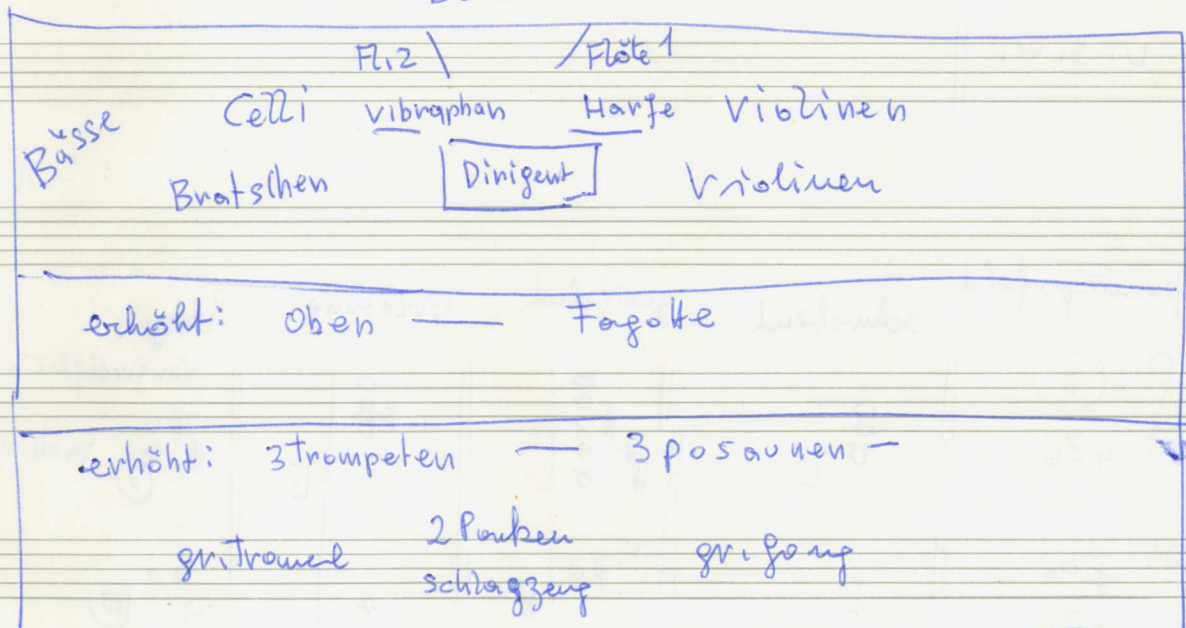 Fl.2 \ / Flöte 1
Bässe Celli Vibraphon Harfe Violinen
Bratschen Dirigent Violinen
erhöht: Oben — Fagotte
erhöht: 3 Trompeten — 3 Posaunen —
gr. Trommel 2 Pauken gr. Gong
Schlagzeug